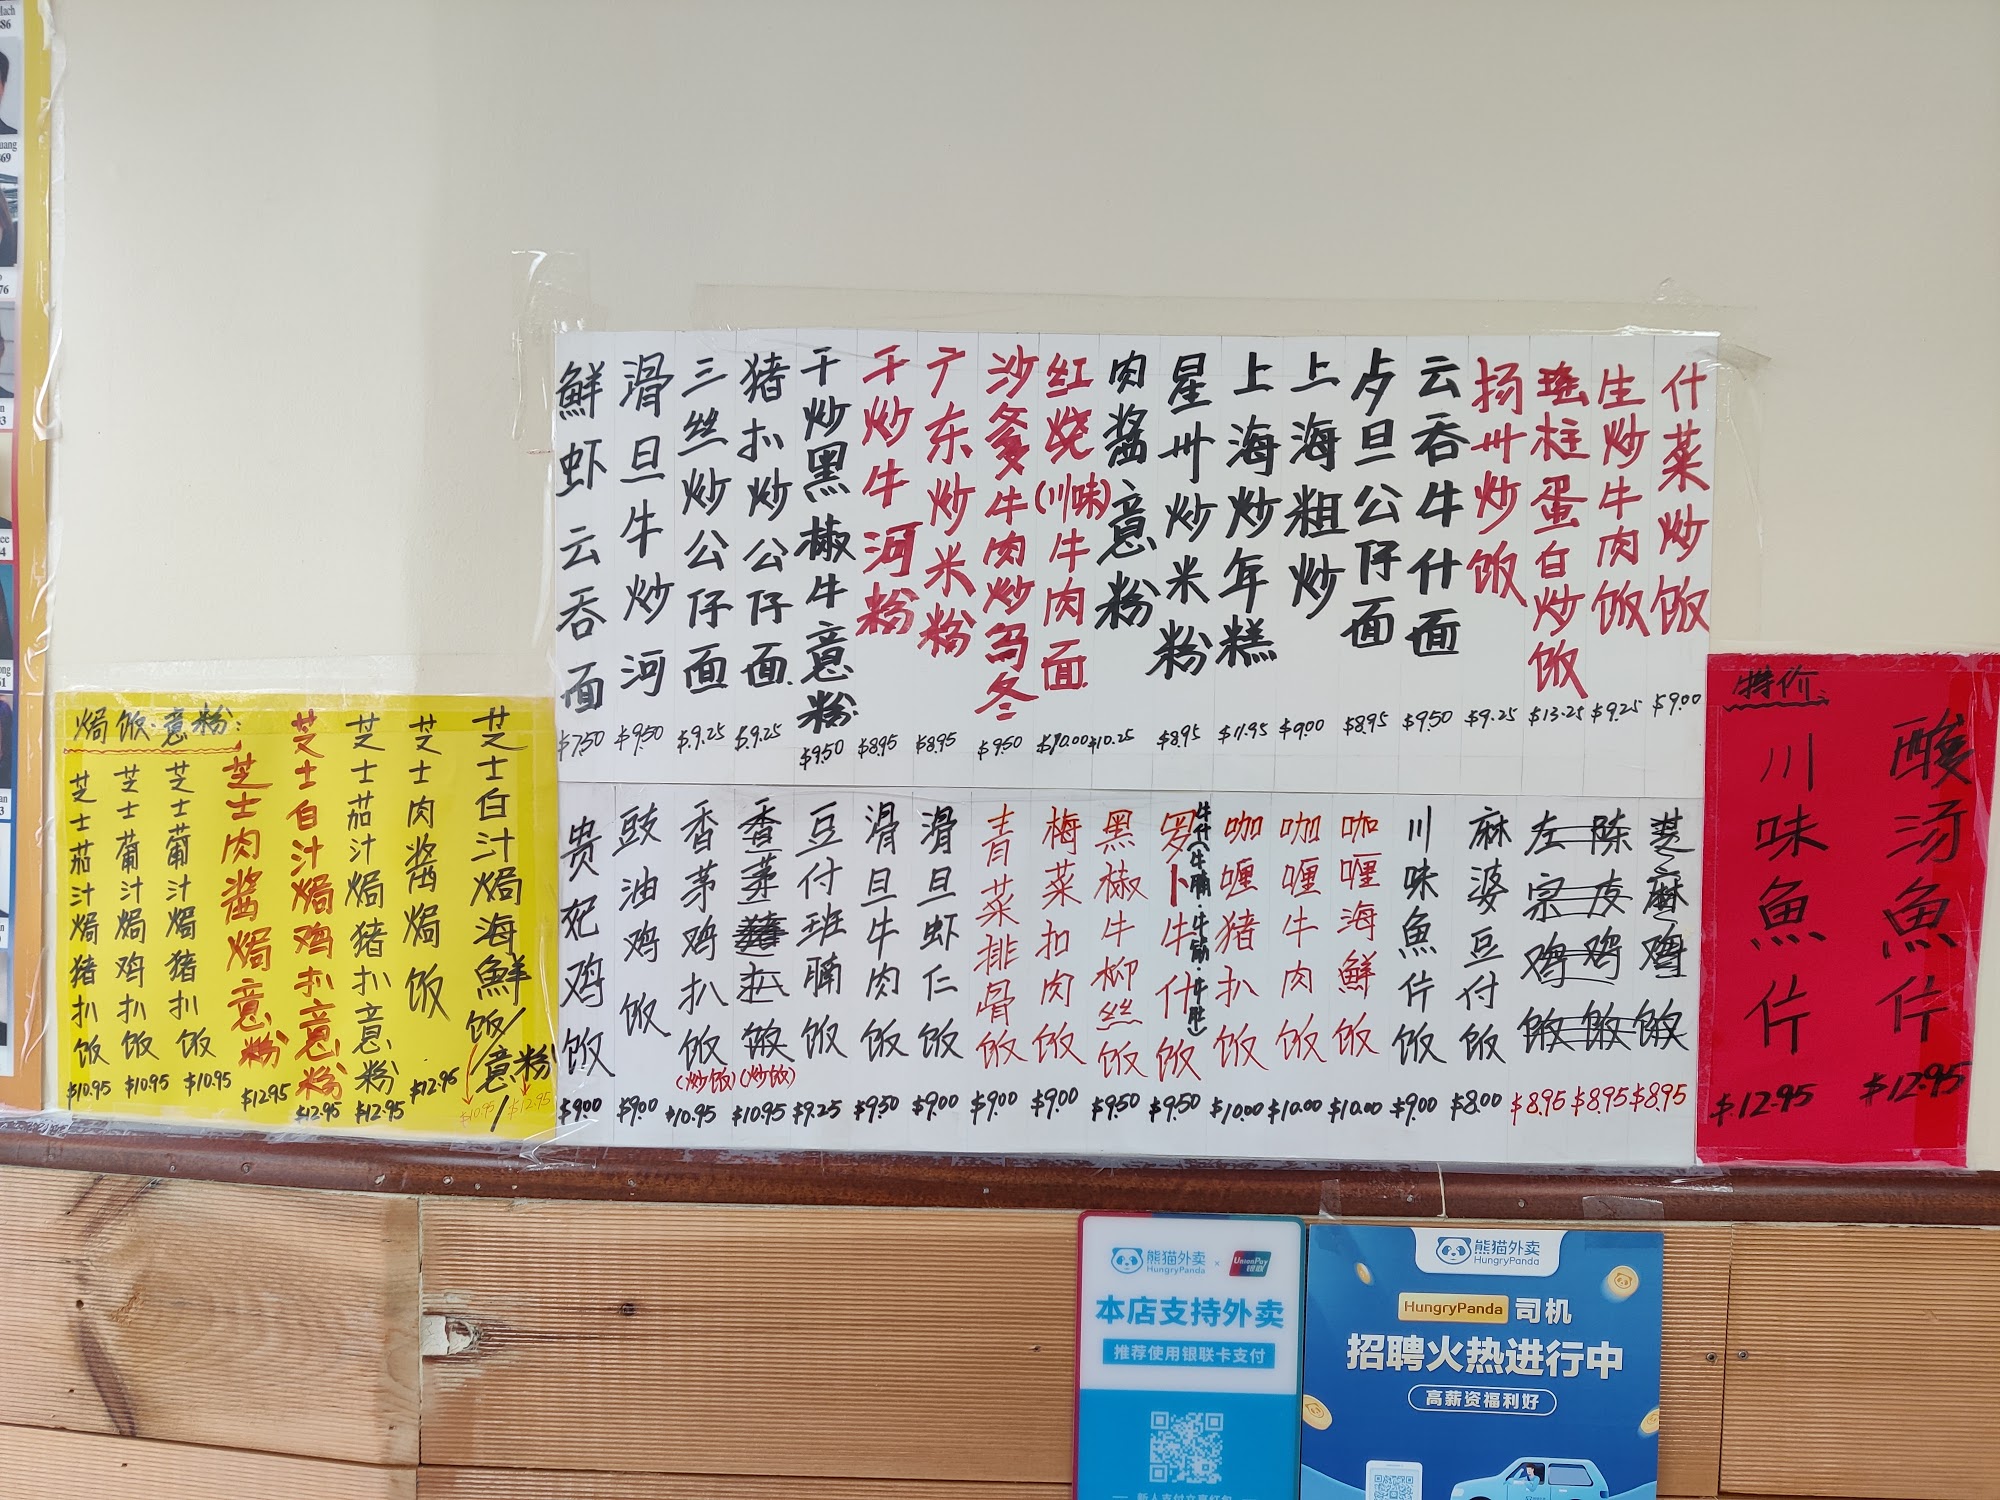 焗饭·意粉:
芝士茄汁焗猪扒饭 $10.95
芝士葡汁焗鸡扒饭 $10.95
芝士葡汁焗猪扒饭 $10.95
芝士肉酱焗意粉 $12.95
芝士白汁焗鸡扒意粉 $12.95
芝士茄汁焗猪扒意粉 $12.95
芝士肉酱焗饭 $12.95
芝士白汁焗海鲜饭/意粉 $10.95/$12.95
鲜虾云吞面 $7.50
滑旦牛炒河 $9.50
三丝炒公仔面 $9.25
猪扒炒公仔面 $9.25
干炒黑椒牛意粉 $9.50
干炒牛河粉 $8.95
广东炒米粉 $8.95
沙爹牛肉炒乌冬 $9.50
红烧(川味)牛肉面 $10.00
肉酱意粉 $10.25
星卅炒米粉 $8.95
上海炒年糕 $11.95
上海粗炒 $9.00
卢旦公仔面 $8.95
云吞牛什面 $9.50
扬卅炒饭 $9.25
瑶柱蛋白炒饭 $13.25
生炒牛肉饭 $9.25
什菜炒饭 $9.00
贵妃鸡饭 $9.00
豉油鸡饭 $9.00
香茅鸡扒饭(炒饭) $10.95
香茅猪扒饭(炒饭) $10.95
豆付班腩饭 $9.25
滑旦牛肉饭 $9.50
滑旦虾仁饭 $9.00
青菜排骨饭 $9.00
梅菜扣肉饭 $9.00
黑椒牛柳丝饭 $9.50
罗卜牛什饭 $9.50
咖喱猪扒饭 $10.00
咖喱牛肉饭 $10.00
咖喱海鲜饭 $10.00
川味魚片饭 $9.00
麻婆豆付饭 $8.00
左宗鸡饭 $8.95
陈皮鸡饭 $8.95
芝麻鸡饭 $8.95
特价:
川味魚片 $12.95
酸汤魚片 $12.95
熊猫外卖
HungryPanda
×
UnionPay
银联
本店支持外卖
推荐使用银联卡支付
熊猫外卖
HungryPanda
HungryPanda 司机
招聘火热进行中
高薪资福利好